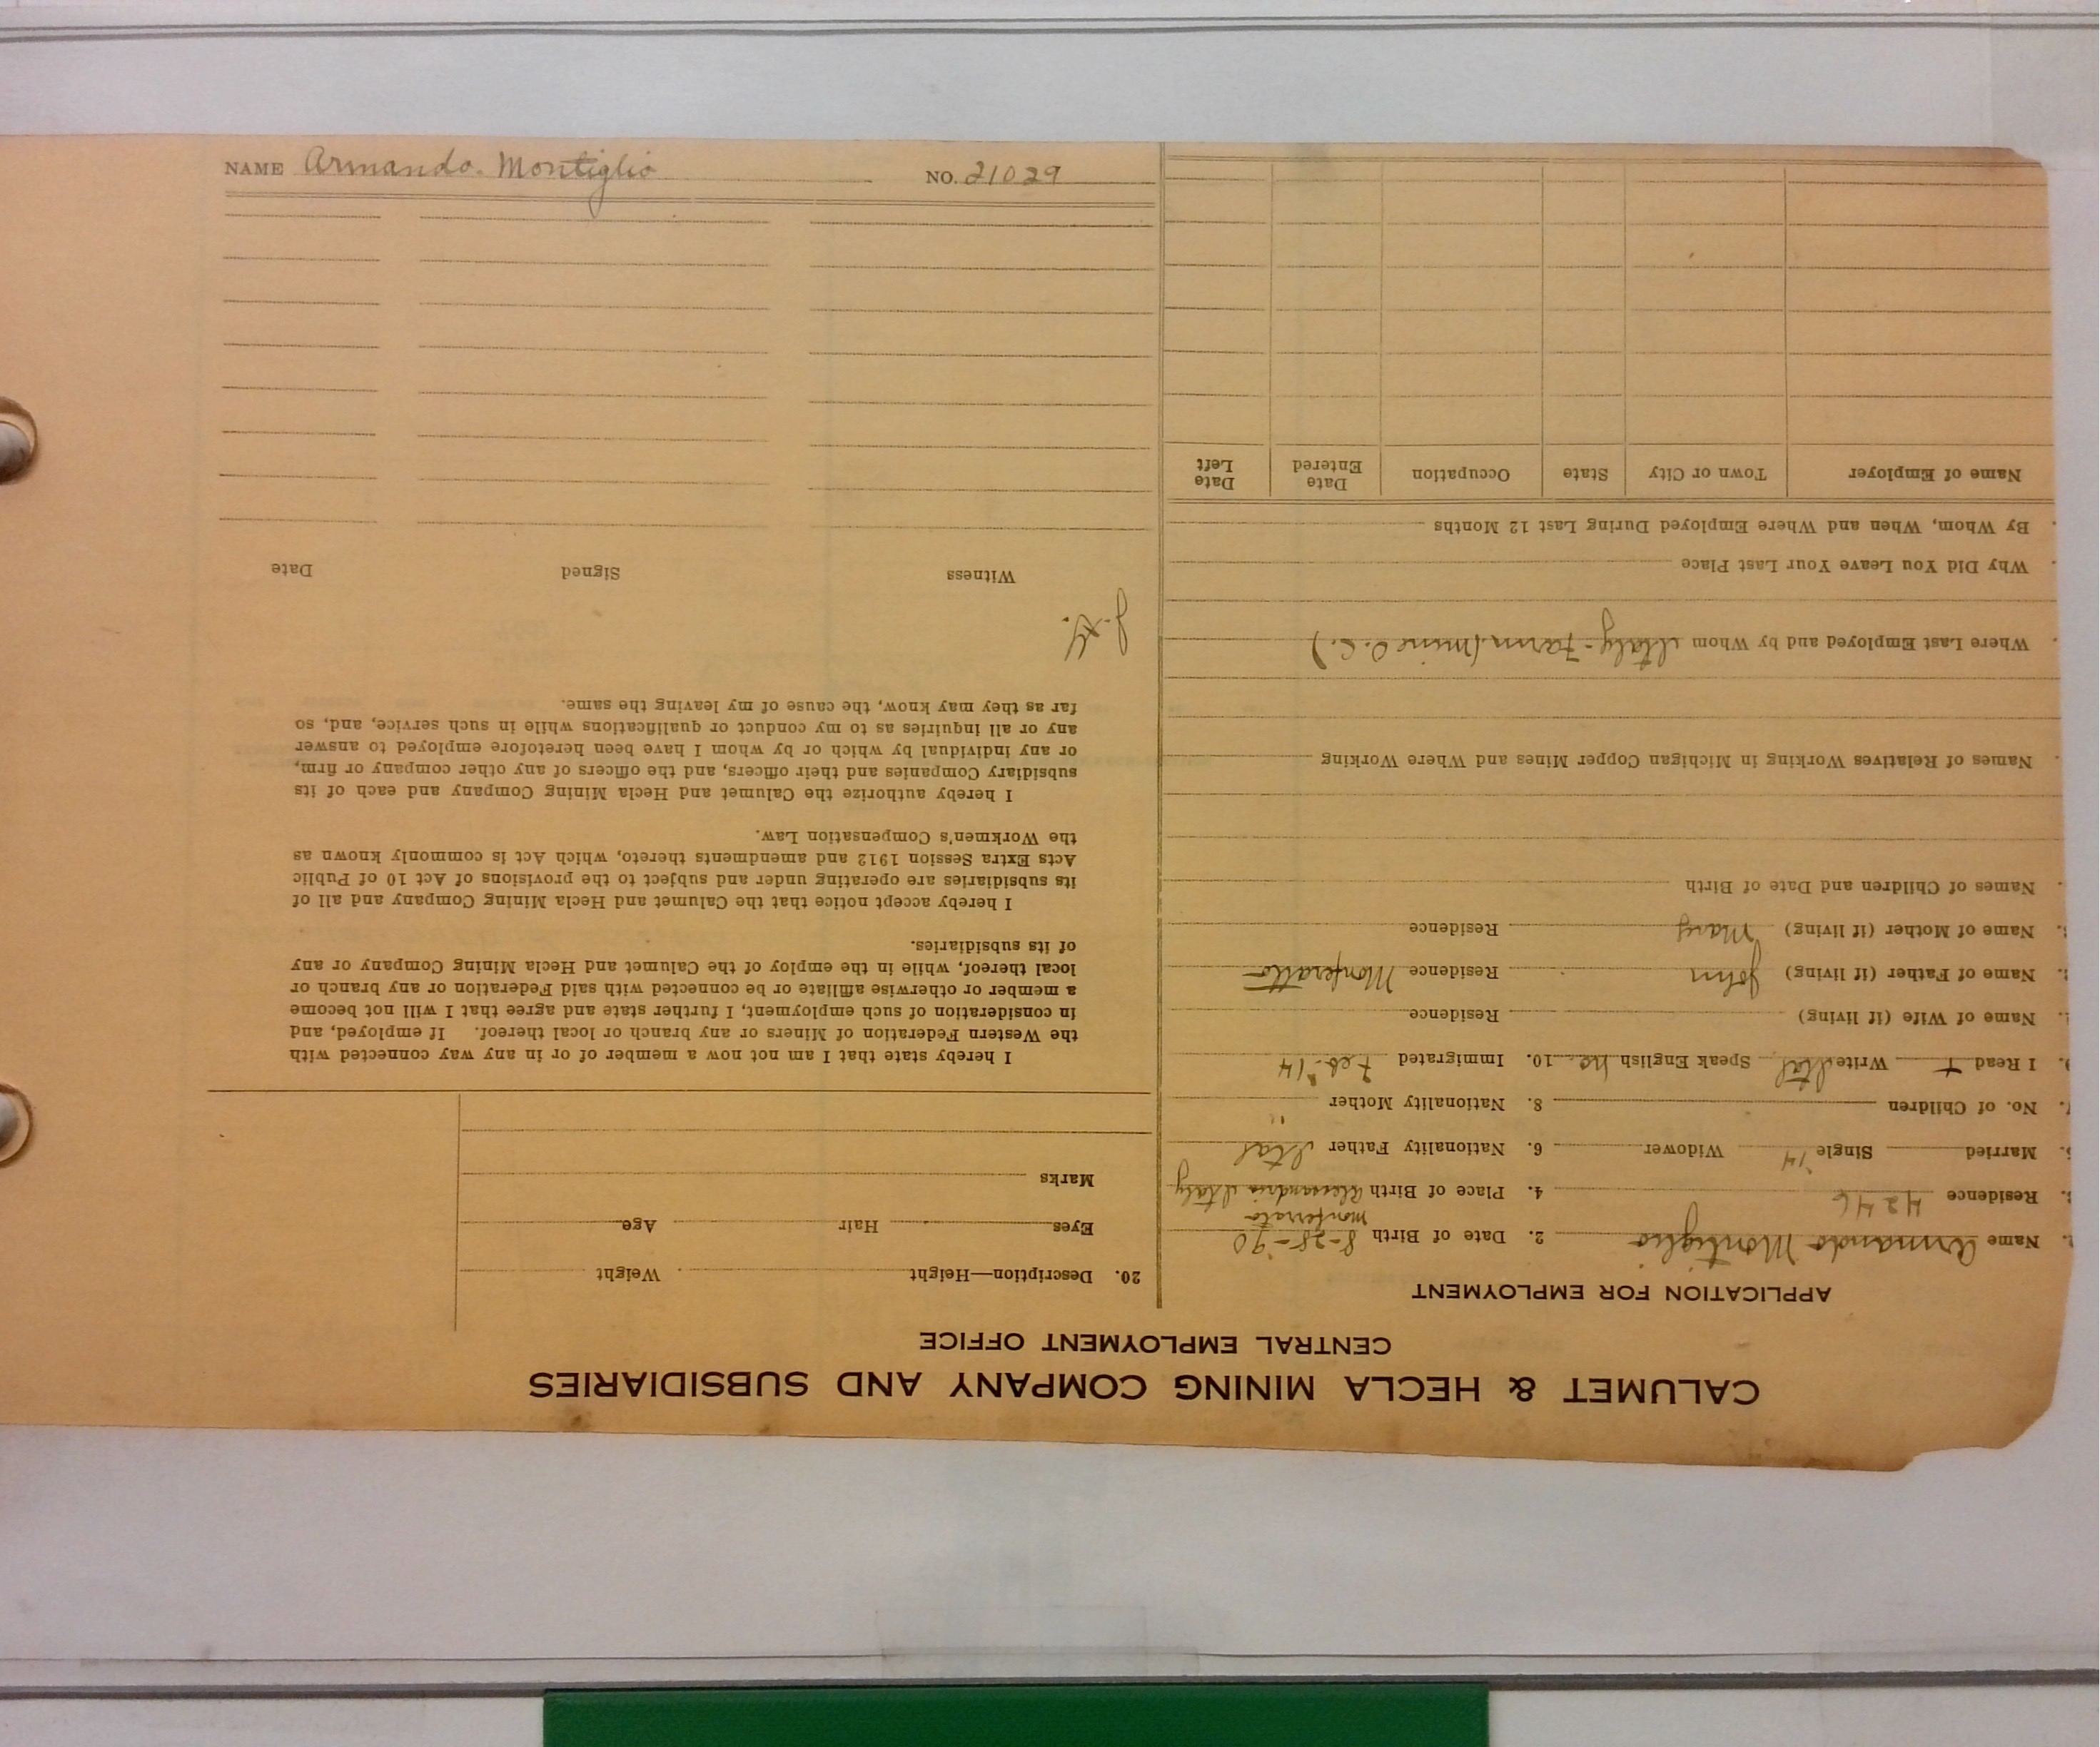 CALUMET & HECLA MINING COMPANY AND SUBSIDIARIES
CENTRAL EMPLOYMENT OFFICE
APPLICATION FOR EMPLOYMENT
Name Armando Montiglio 2. Date of Birth 8-28-'90
Monferrato
Residence 4246 4. Place of Birth Alessandria Italy
Married Single '14 Widower 6. Nationality Father Ital
No. of Children 8. Nationality Mother "
I Read + Write Ital Speak English no 10. Immigrated Feb-'14
Name of Wife (if living) Residence
Name of Father (if living) John Residence Monferatto
Name of Mother (if living) Mary Residence
Names of Children and Date of Birth
Names of Relatives Working in Michigan Copper Mines and Where Working
Where Last Employed and by Whom Italy-Farm (mine O.C.)
Why Did You Leave Your Last Place
By Whom, When and Where Employed During Last 12 Months
Name of Employer Town or City State Occupation Date Entered Date Left
20. Description—Height Weight
Eyes Hair Age
Marks
I hereby state that I am not now a member of or in any way connected with
the Western Federation of Miners or any branch or local thereof. If employed, and
in consideration of such employment, I further state and agree that I will not become
a member or otherwise affiliate or be connected with said Federation or any branch or
local thereof, while in the employ of the Calumet and Hecla Mining Company or any
of its subsidiaries.
I hereby accept notice that the Calumet and Hecla Mining Company and all of
its subsidiaries are operating under and subject to the provisions of Act 10 of Public
Acts Extra Session 1912 and amendments thereto, which Act is commonly known as
the Workmen's Compensation Law.
I hereby authorize the Calumet and Hecla Mining Company and each of its
subsidiary Companies and their officers, and the officers of any other company or firm,
or any individual by which or by whom I have been heretofore employed to answer
any or all inquiries as to my conduct or qualifications while in such service, and, so
far as they may know, the cause of my leaving the same.
Witness Signed Date
NAME Armando Montiglio NO. 21029